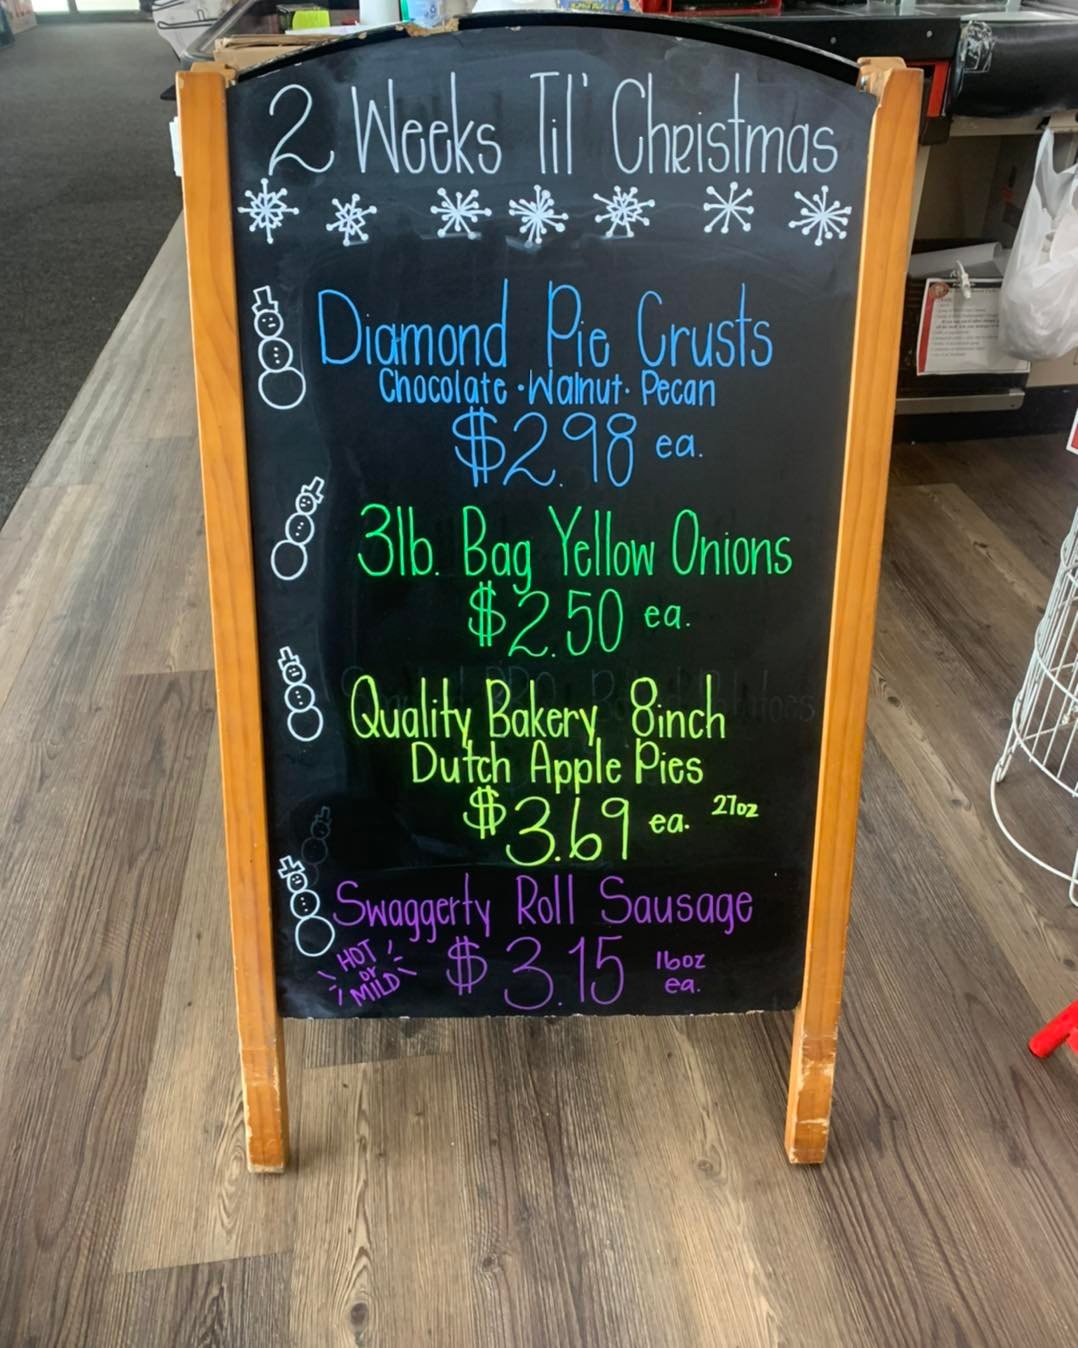 2 Weeks Til' Christmas
Diamond Pie Crusts
Chocolate · Walnut · Pecan
$2.98 ea.
3lb. Bag Yellow Onions
$2.50 ea.
Quality Bakery 8inch
Dutch Apple Pies
$3.69 ea. 27oz
Swaggerty Roll Sausage
HOT
or
MILD
$3.15 16oz
ea.